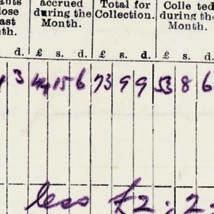 nts accrued Total for Colle ted
lose during the Collection. during the
ast Month. Month.
th.
d. £ s. d. £ s. d. £ s. d.
3 44 15 6 73 9 9 53 8 6
less £2: 2